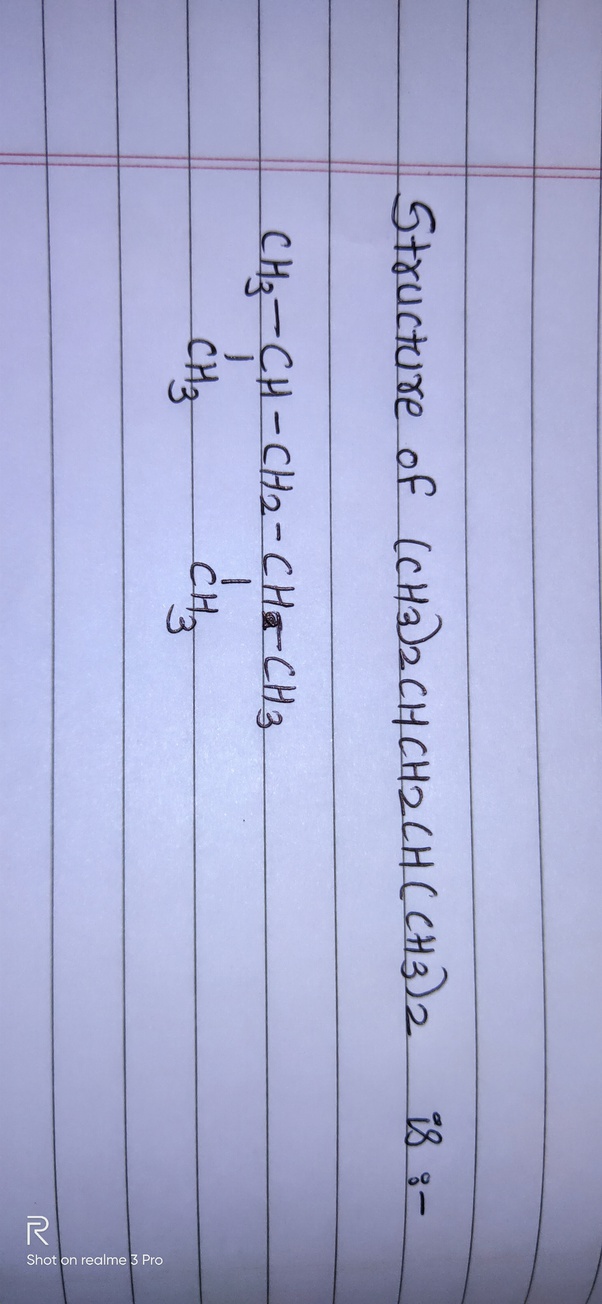 Structure of (CH3)2CHCH2CH(CH3)2 is :-
CH3-CH-CH2-CH-CH3
CH3 CH3
R
Shot on realme 3 Pro